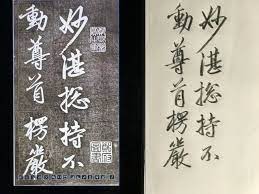 妙湛緫持不
動尊首楞嚴
妙湛緫持不
動尊首楞嚴